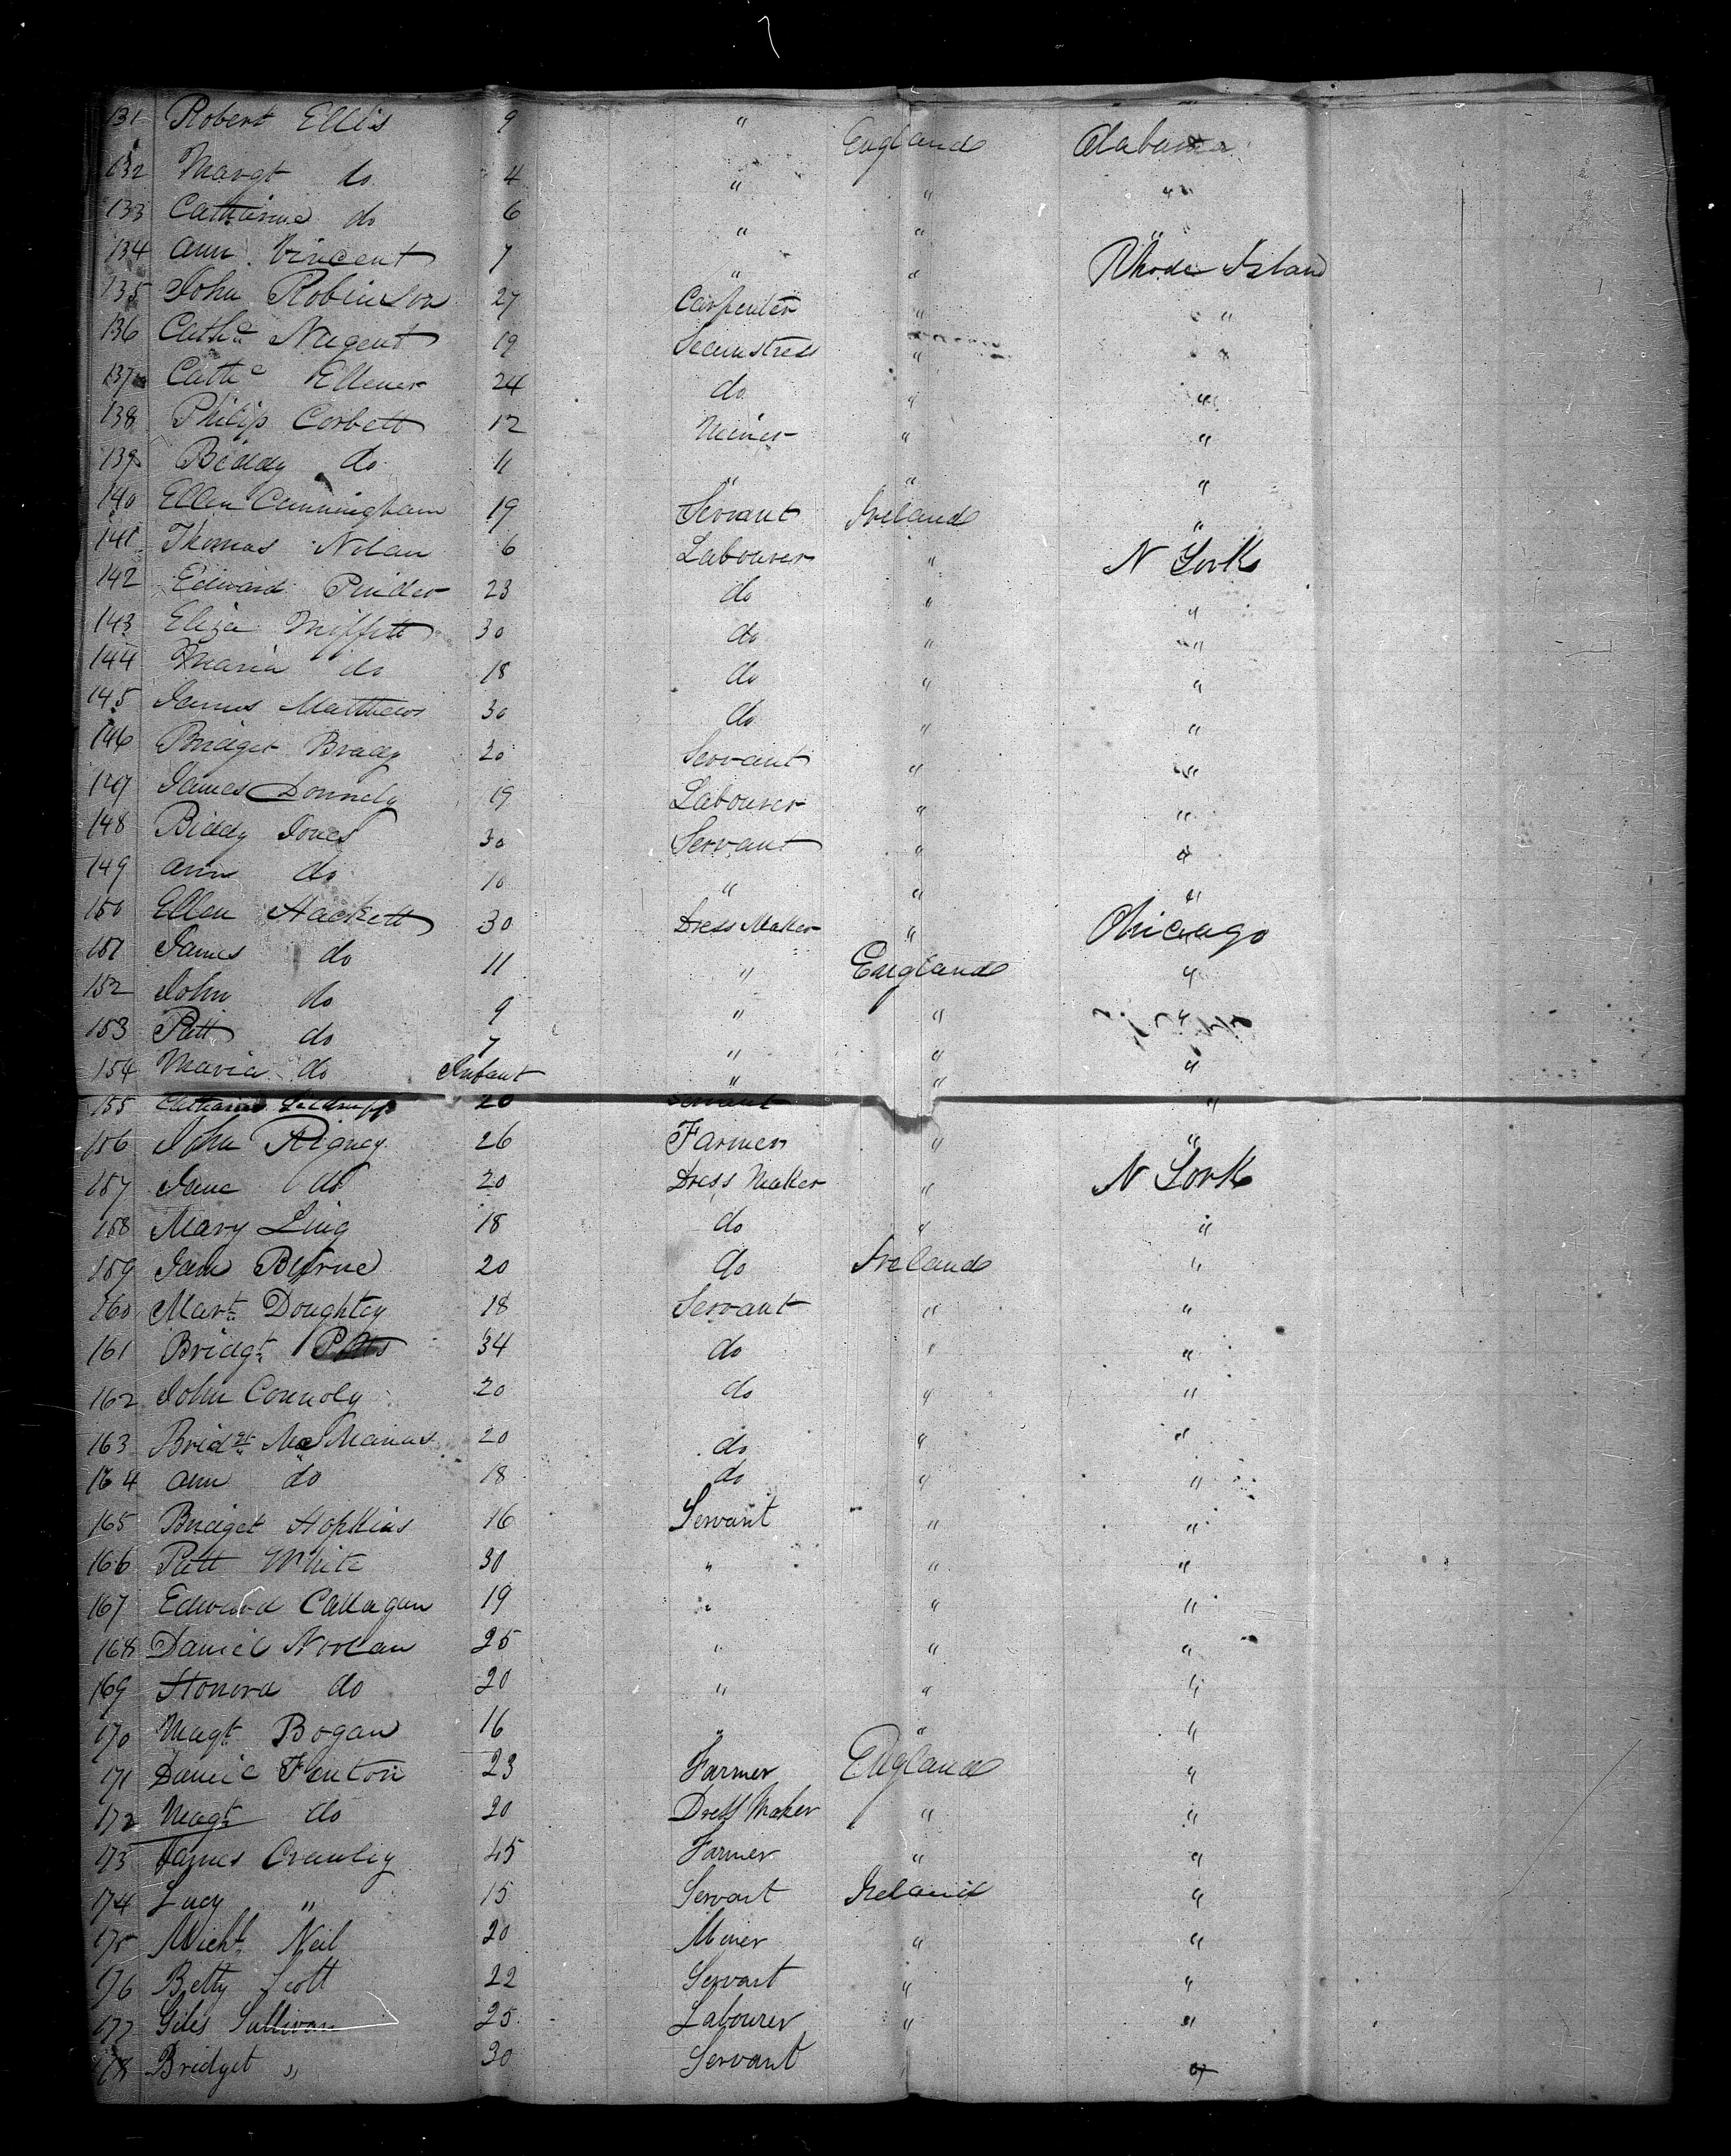 131 Robert Ellis 9 " England Alabama
132 Margt do 4 " " "
133 Catharine do 6 " " "
134 Ann Vincent 7 " " Rhode Island
135 John Robinson 27 Carpenter " "
136 Cathe Nugent 19 Seamstress " "
137 Cathe Ellener 24 do " "
138 Philip Corbett 12 Miner " "
139 Biddy do 11 " " "
140 Ellen Cunningham 19 Servant Ireland "
141 Thomas Nolan 6 Labourer " N York
142 Edward 23 do " "
143 Eliza Miffitt 30 do " "
144 Maria do 18 do " "
145 James Matthews 30 do " "
146 Bridget Brady 20 Servant " "
147 James Donnely 19 Labourer " "
148 Biddy Jones 30 Servant " "
149 Ann do 10 " " "
150 Ellen Hackett 30 Dress Maker " Chicago
151 James do 11 " England "
152 John do 9 " "
153 Patt do 7 " " "
154 Maria do Infant " "
155 Catharine 20 Servant "
156 John Rigney 26 Farmer " "
157 Jane do 20 Dress Maker " N York
158 Mary Ling 18 do " "
159 Jane Byrne 20 do Ireland "
160 Mart Doughtey 18 Servant " "
161 Bridgt 34 do " "
162 John Connoly 20 do " "
163 Bridgt McManus 20 do " "
164 Ann do 18 do " "
165 Bridget Hopkins 16 Servant " "
166 Patt White 30 " " "
167 Edward Callagan 19 " " "
168 Daniel Noolan 25 " " "
169 Honora do 20 " " "
170 Magt Bogan 16 " " "
171 Daniel Fenton 23 Farmer England "
172 Magt do 20 Dress Maker " "
173 James Crawley 45 Farmer " "
174 Lucy " 15 Servant Ireland "
175 Michl Neil 20 Miner " "
176 Betty Scott 22 Servant " "
177 Giles Sullivan 25 Labourer " "
178 Bridget " 30 Servant " "